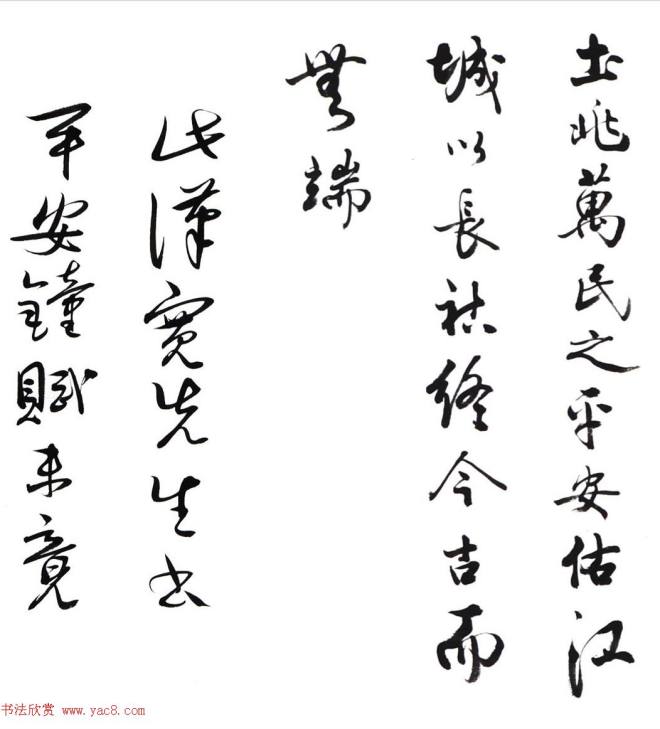 土兆萬民之平安佑江
城以長祜終今吉而
無端
此漢寬先生书
平安鐘賦未竟
书法欣赏 www.yac8.com